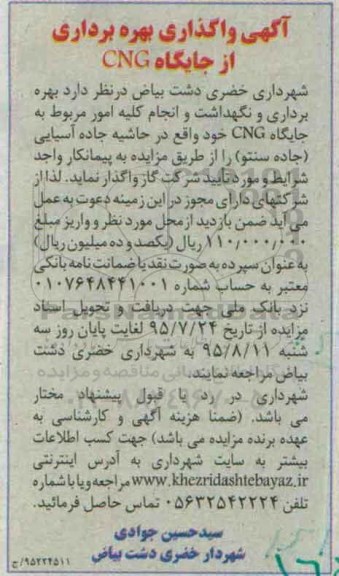 آگهی واگذاری بهره برداری
از جایگاه CNG
شهرداری خضری دشت بیاض درنظر دارد بهره
برداری و نگهداشت و انجام کلیه امور مربوط به
جایگاه CNG خود واقع در حاشیه جاده آسیایی
(جاده سنتو) را از طریق مزایده به پیمانکار واجد
شرایط و مورد تأیید شرکت گاز واگذار نماید. لذا از
شرکتهای دارای مجوز در این زمینه دعوت به عمل
می آید ضمن بازدید از محل مورد نظر و واریز مبلغ
۱۱۰/۰۰۰/۰۰۰ ریال (یکصد و ده میلیون ریال)
به عنوان سپرده به صورت نقد یا ضمانت نامه بانکی
معتبر به حساب شماره ۰۱۰۷۶۴۸۴۴۱۰۰۱
نزد بانک ملی جهت دریافت و تحویل اسناد
مزایده از تاریخ ۹۵/۷/۲۴ لغایت پایان روز سه
شنبه ۹۵/۸/۱۱ به شهرداری خضری دشت
بیاض مراجعه نمایند.
شهرداری در رد یا قبول پیشنهاد مختار
می باشد. (ضمنا هزینه آگهی و کارشناسی به
عهده برنده مزایده می باشد) جهت کسب اطلاعات
بیشتر به سایت شهرداری به آدرس اینترنتی
www.khezridashtebayaz.ir مراجعه و یا با شماره
تلفن ۰۵۶۳۲۵۴۲۲۲۴ تماس حاصل فرمائید.
سیدحسین جوادی
شهردار خضری دشت بیاض
۹۵۲۲۴۵۱۱/ج